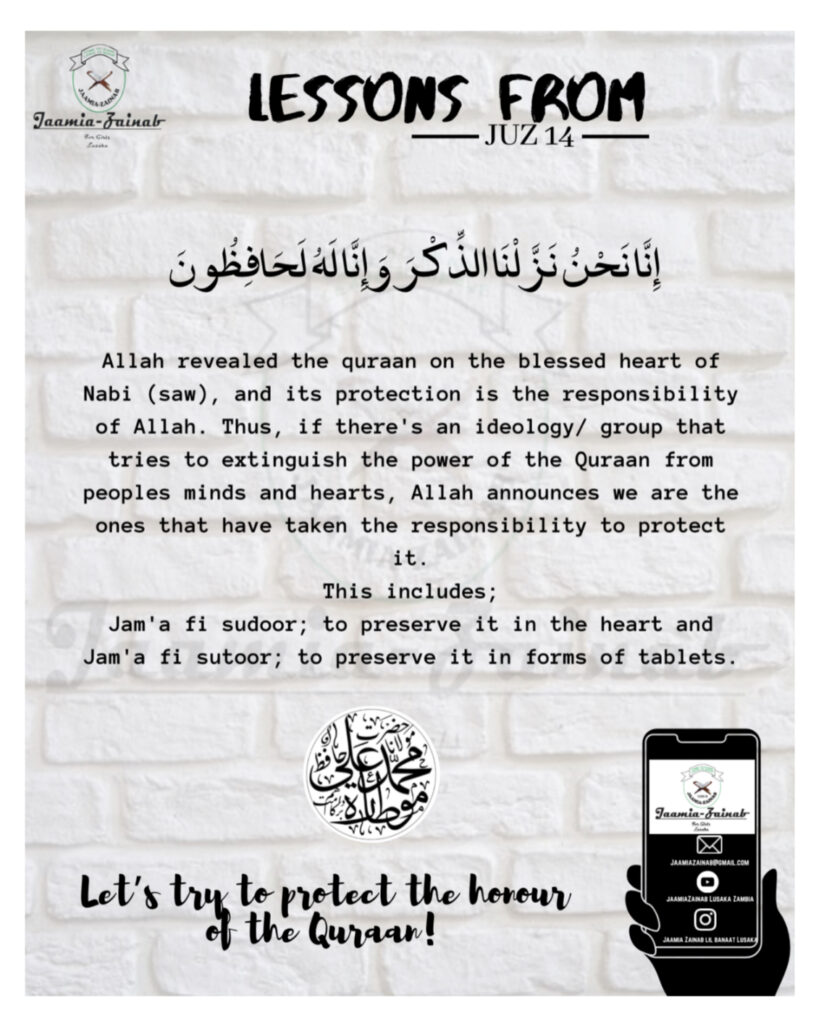 JAAMIA-ZAINAB
Jaamia-Zainab
For Girls
Lusaka
LESSONS FROM
JUZ 14
إِنَّا نَحْنُ نَزَّلْنَا الذِّكْرَ وَإِنَّا لَهُ لَحَافِظُونَ
Allah revealed the quraan on the blessed heart of
Nabi (saw), and its protection is the responsibility
of Allah. Thus, if there's an ideology/ group that
tries to extinguish the power of the Quraan from
peoples minds and hearts, Allah announces we are the
ones that have taken the responsibility to protect
it.
This includes;
Jam'a fi sudoor; to preserve it in the heart and
Jam'a fi sutoor; to preserve it in forms of tablets.
حضرت مولانا حافظ
محمد علي
موطارہ
Let's try to protect the honour
of the Quraan!
JAAMIA-ZAINAB
Jaamia-Zainab
For Girls
Lusaka
JAAMIAZAINAB@GMAIL.COM
JAAMIAZAINAB LUSAKA ZAMBIA
JAAMIA ZAINAB LIL BANAAT LUSAKA